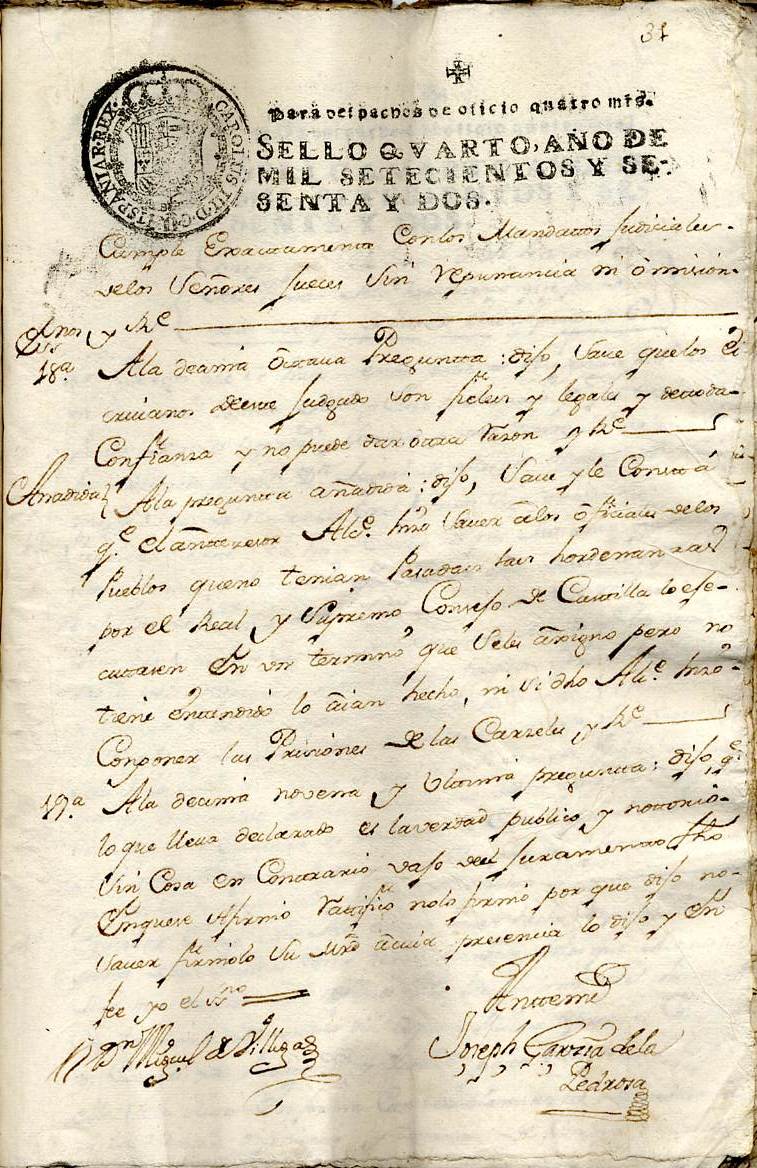 31
Para despachos de oficio quatro mrs.
SELLO QVARTO, AÑO DE
MIL SETECIENTOS Y SE-
SENTA Y DOS.
CAROLUS III D G HISPANIAR REX
Cumple Exactamente Conlos Mandatos Judiciales
delos Señores Jueces Sin repunancia ni omision
y &c
18a Ala decima Octaua Pregunta: dijo, Saue quelos Es
criuanos deeste Judgado son fieles y legales y detoda
Confianza y no puede dar otra razon y &c
Anadida Ala pregunta añadida: dijo, Saue y le Consta
qe. el antteresor Alce. hizo Sauer alos oficiales delos
Pueblos queno tenian Pasadas sus hordenanzas
por el Real y Supremo Consejo de Castilla lo eje-
cutasen En vn termino que Seles asigno pero no
tiene entendido lo aian hecho, ni si dho Alce. hizo
Conponer las Prisiones de las Carzeles, y &c
19a Ala decima novena y Vltima pregunta: dijo, qe
lo que lleua declarado es laverdad publico y nottorio
Sin Cosa en Contrario vajo del Juramento fho
Enquese afirmo rattifico nolo firmo por que dijo no
sauer firmolo Su Mrd acuia presencia lo dijo y En
fee yo el ssno
Anttemi
Dn Miguel de Villegas
Joseph Garzia dela
Pedrosa